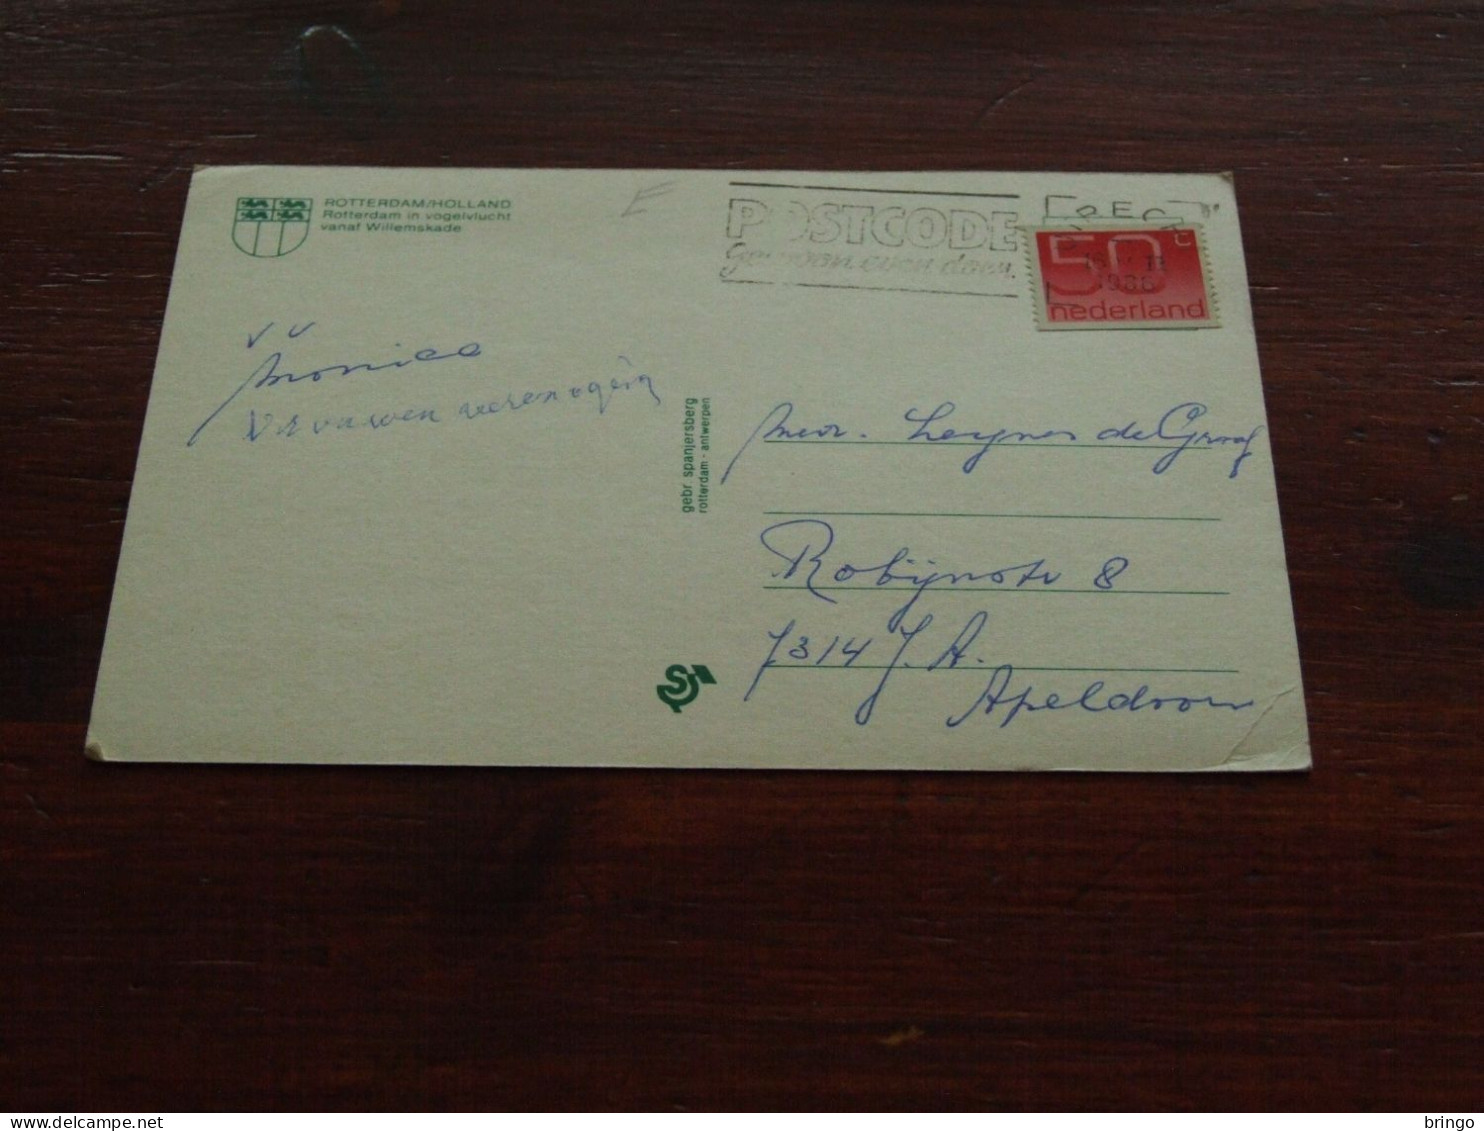 ROTTERDAM/HOLLAND
Rotterdam in vogelvlucht
vanaf Willemskade
POSTCODE
Gewoon even doen.
1986
50c
nederland
Monica
Vrouwen vereniging
gebr. spanjersberg
rotterdam - antwerpen
Mevr. Leynes de Graaf
Robijnstr 8
7314 J.A.
Apeldoorn
bringo
delcampe.net